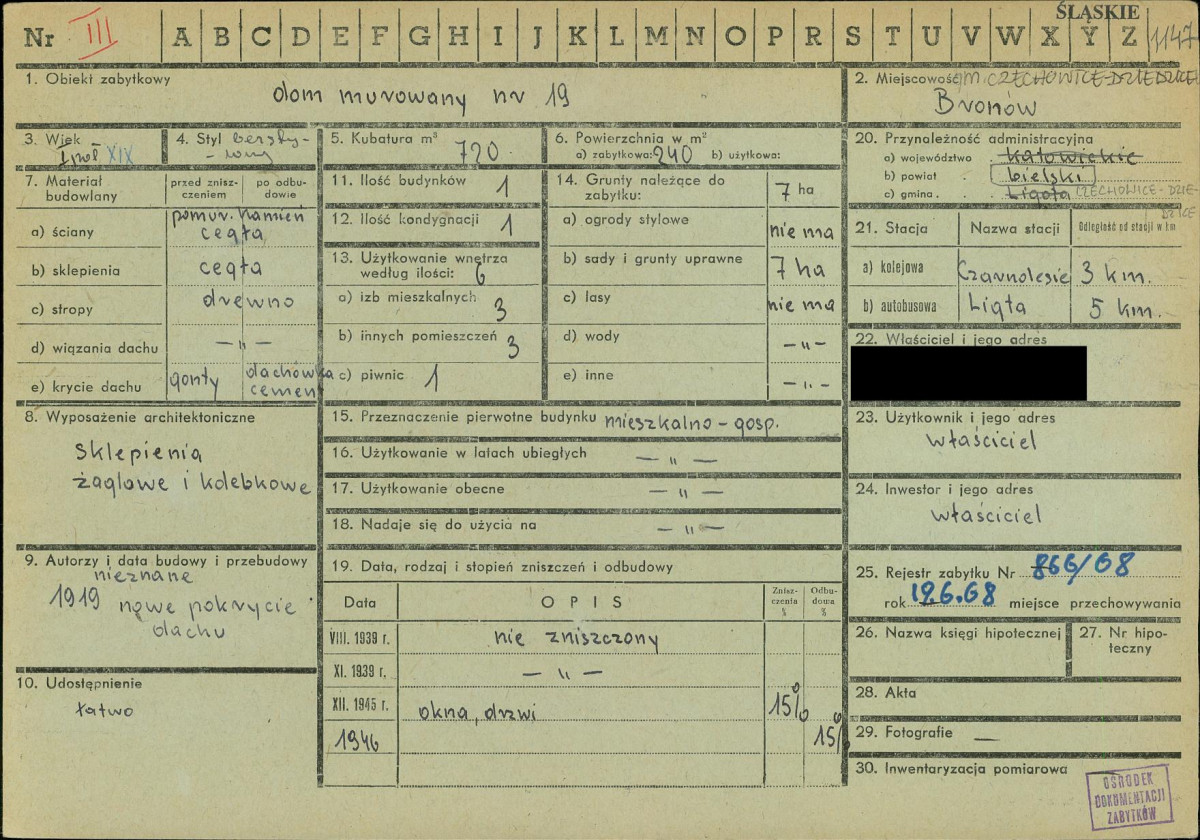 ŚLĄSKIE
Nr III A B C D E F G H I J K L M N O P R S T U V W X Y Z 1147
1. Obiekt zabytkowy
dom murowany nr 19
2. Miejscowość gm. CZECHOWICE-DZIEDZICE
Bronow
3. Wiek
I poł XIX
4. Styl bezsty-
-lowy
5. Kubatura m³
720
6. Powierzchnia w m²
a) zabytkowa: 240 b) użytkowa:
7. Materiał budowlany
przed znisz-
czeniem
po odbu-
dowie
a) ściany pomur. kamień
cegła
b) sklepienia cegła
c) stropy drewno
d) wiązania dachu —„—
e) krycie dachu gonty dachówka
cement
8. Wyposażenie architektoniczne
sklepienia
żaglowe i kolebkowe
9. Autorzy i data budowy i przebudowy
nieznane
1919 nowe pokrycie
dachu
10. Udostępnienie
łatwo
11. Ilość budynków 1
12. Ilość kondygnacji 1
13. Użytkowanie wnętrza
według ilości: 6
a) izb mieszkalnych 3
b) innych pomieszczeń 3
c) piwnic 1
14. Grunty należące do
zabytku: 7 ha
a) ogrody stylowe nie ma
b) sady i grunty uprawne 7 ha
c) lasy nie ma
d) wody —„—
e) inne —„—
15. Przeznaczenie pierwotne budynku mieszkalno-gosp.
16. Użytkowanie w latach ubiegłych — „ —
17. Użytkowanie obecne — „ —
18. Nadaje się do użycia na — „ —
19. Data, rodzaj i stopień zniszczeń i odbudowy
Data OPIS Znisz-
czenia
% Odbu-
dowa
%
VIII. 1939 r. nie zniszczony
XI. 1939 r. — „ —
XII. 1945 r. okna, drzwi 15%
1946 15%
20. Przynależność administracyjna
a) województwo katowickie
b) powiat bielski
c) gmina Ligota CZECHOWICE-DZIE-
DZICE
21. Stacja Nazwa stacji Odległość od stacji w km
a) kolejowa Czarnolesie 3 km.
b) autobusowa Ligta 5 km.
22. Właściciel i jego adres
23. Użytkownik i jego adres
właściciel
24. Inwestor i jego adres
właściciel
25. Rejestr zabytku Nr 866/68
rok 19.6.68 miejsce przechowywania
26. Nazwa księgi hipotecznej
27. Nr hipo-
teczny
28. Akta
29. Fotografie —
30. Inwentaryzacja pomiarowa
OŚRODEK
DOKUMENTACJI
ZABYTKÓW